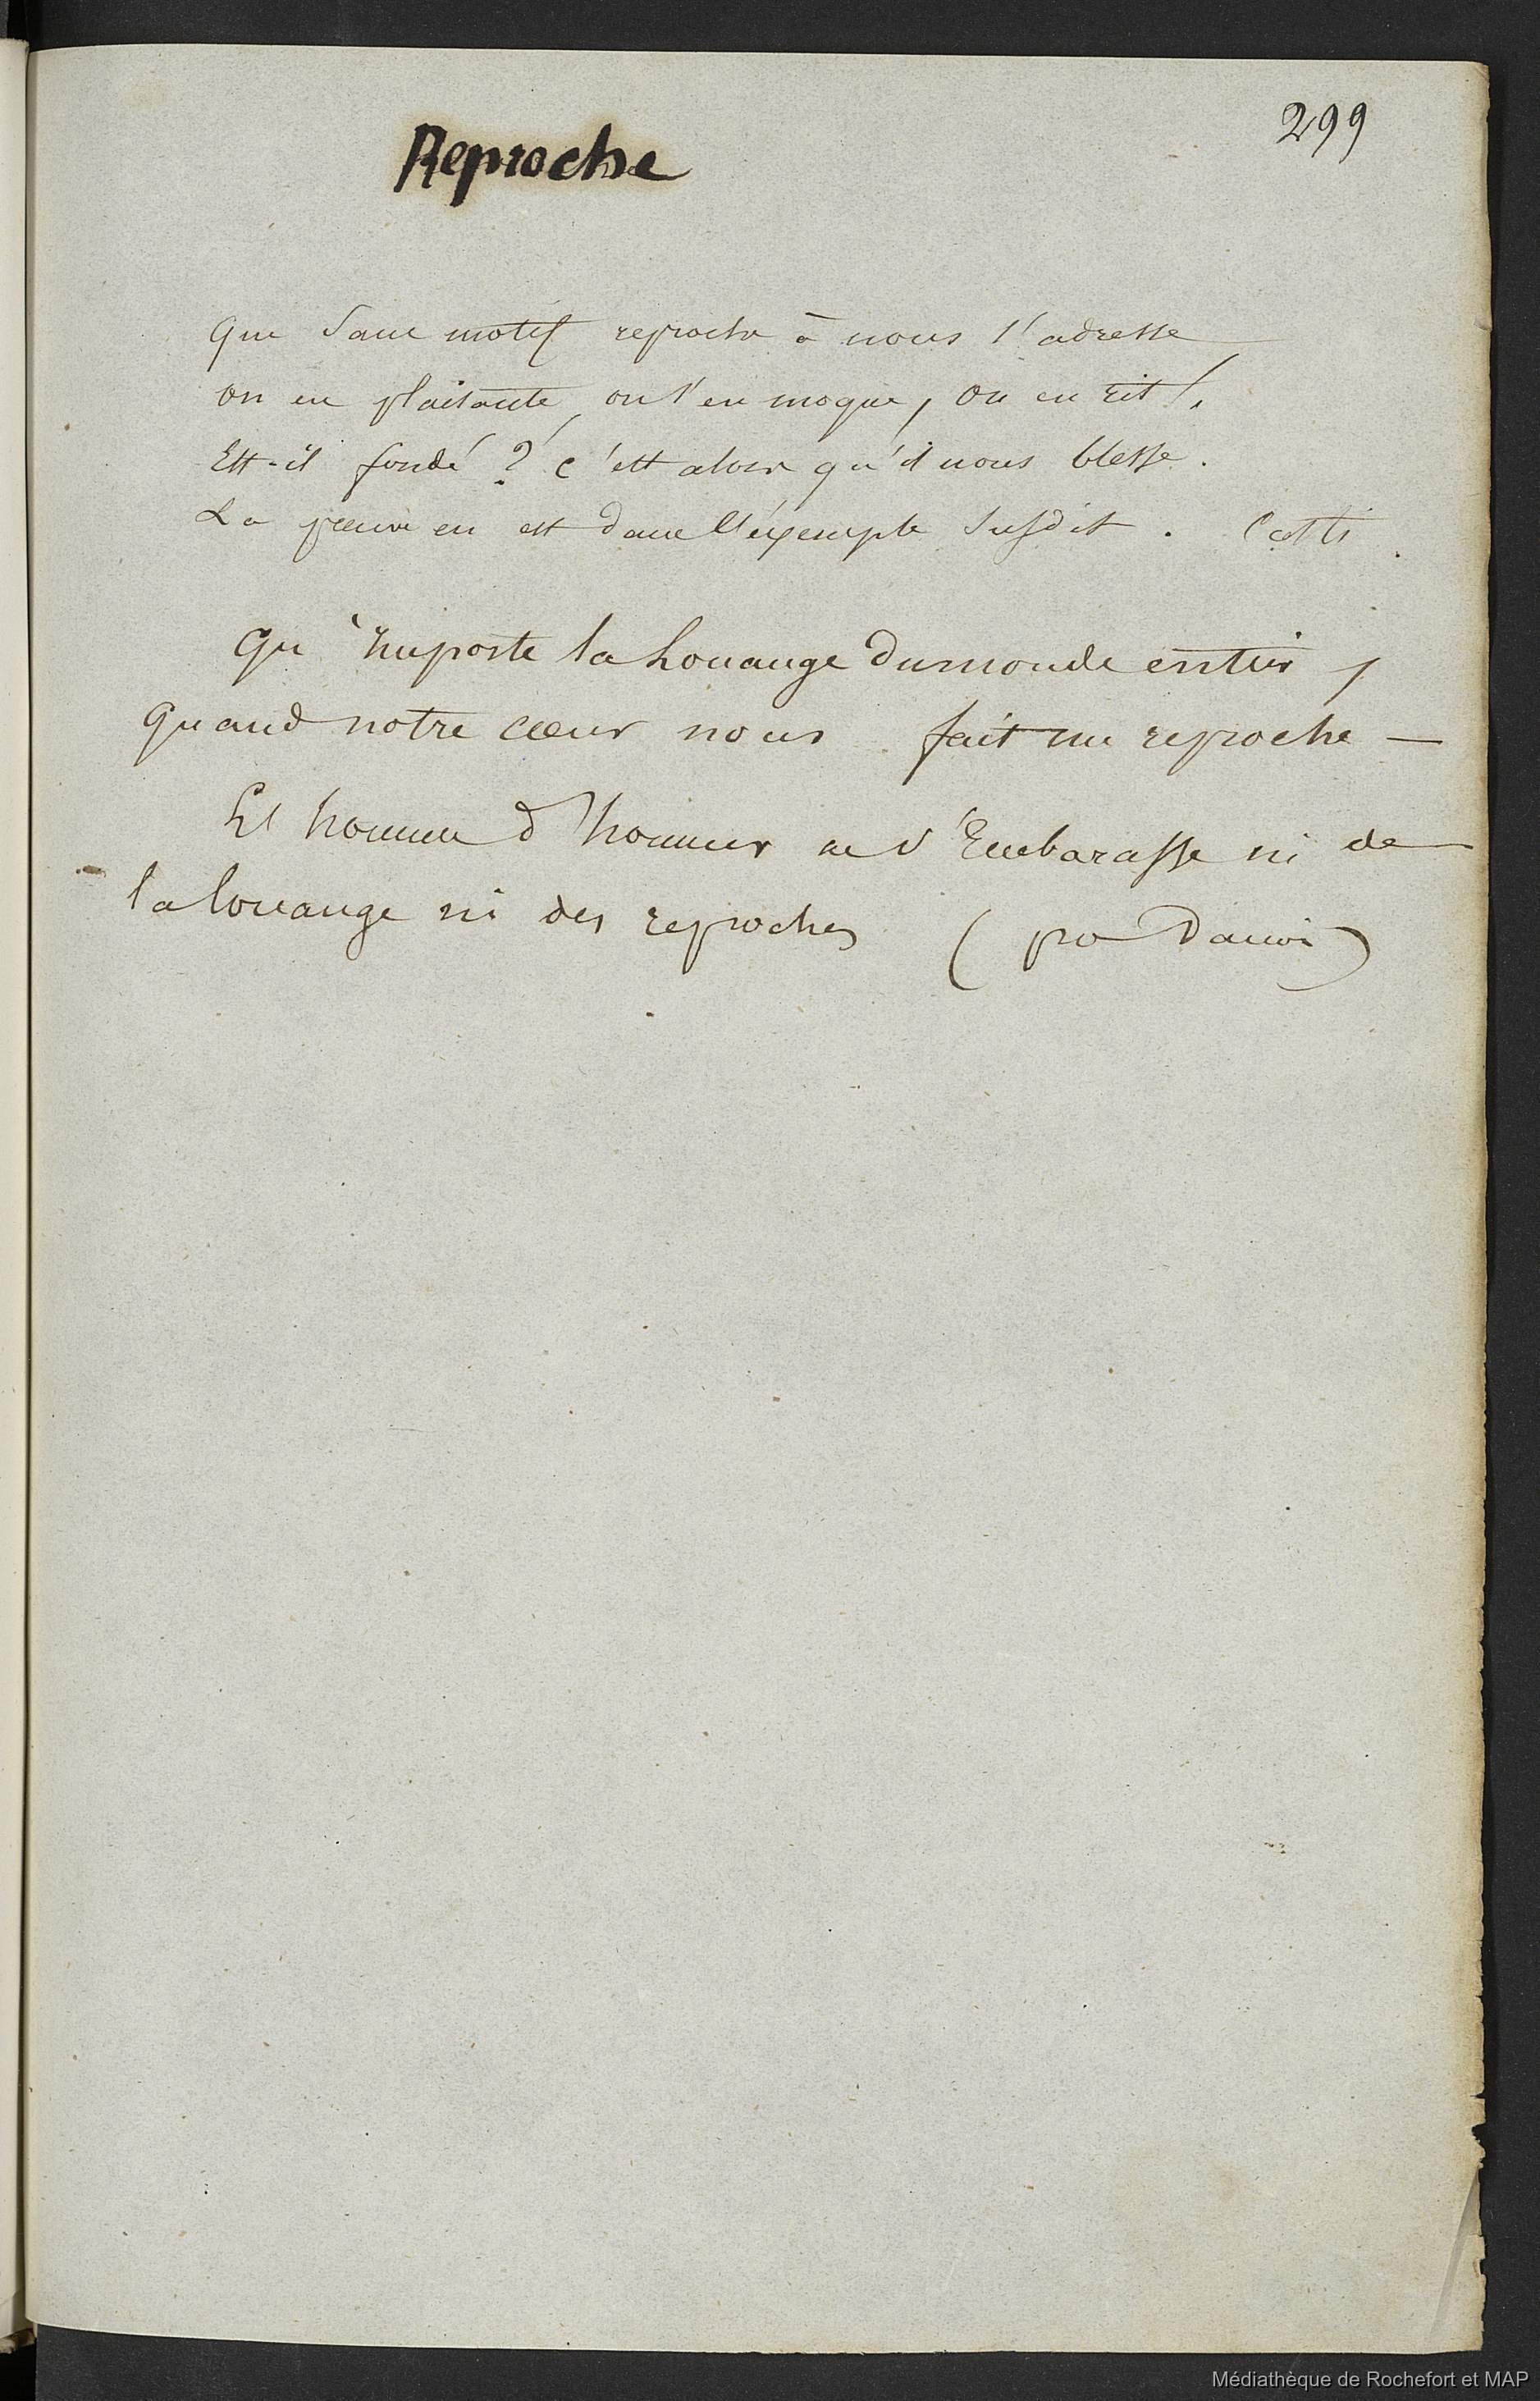 299
Reproche
Que sans motif reproche à nous s'adresse
on en plaisante, on s'en moque, on en rit !.
Est-il fondé ? c'est alors qu'il nous blesse.
La preuve en est dans l'éxemple susdit. Casti.
Qu'importe la Louange du monde entier,
quand notre cœur nous fait un reproche —
L'homme d'honneur ne s'Embarasse ni de
la louange ni des reproches (pro
Médiathèque de Rochefort et MAP